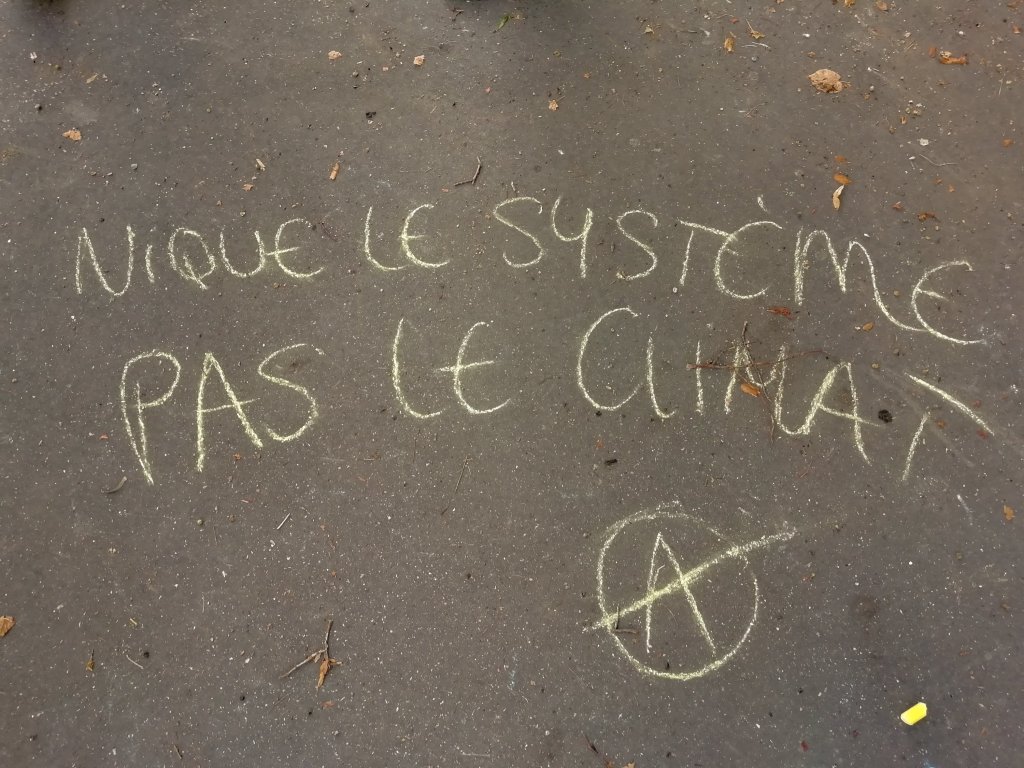 NIQUE LE SYSTÈME
PAS LE CLIMAT
A